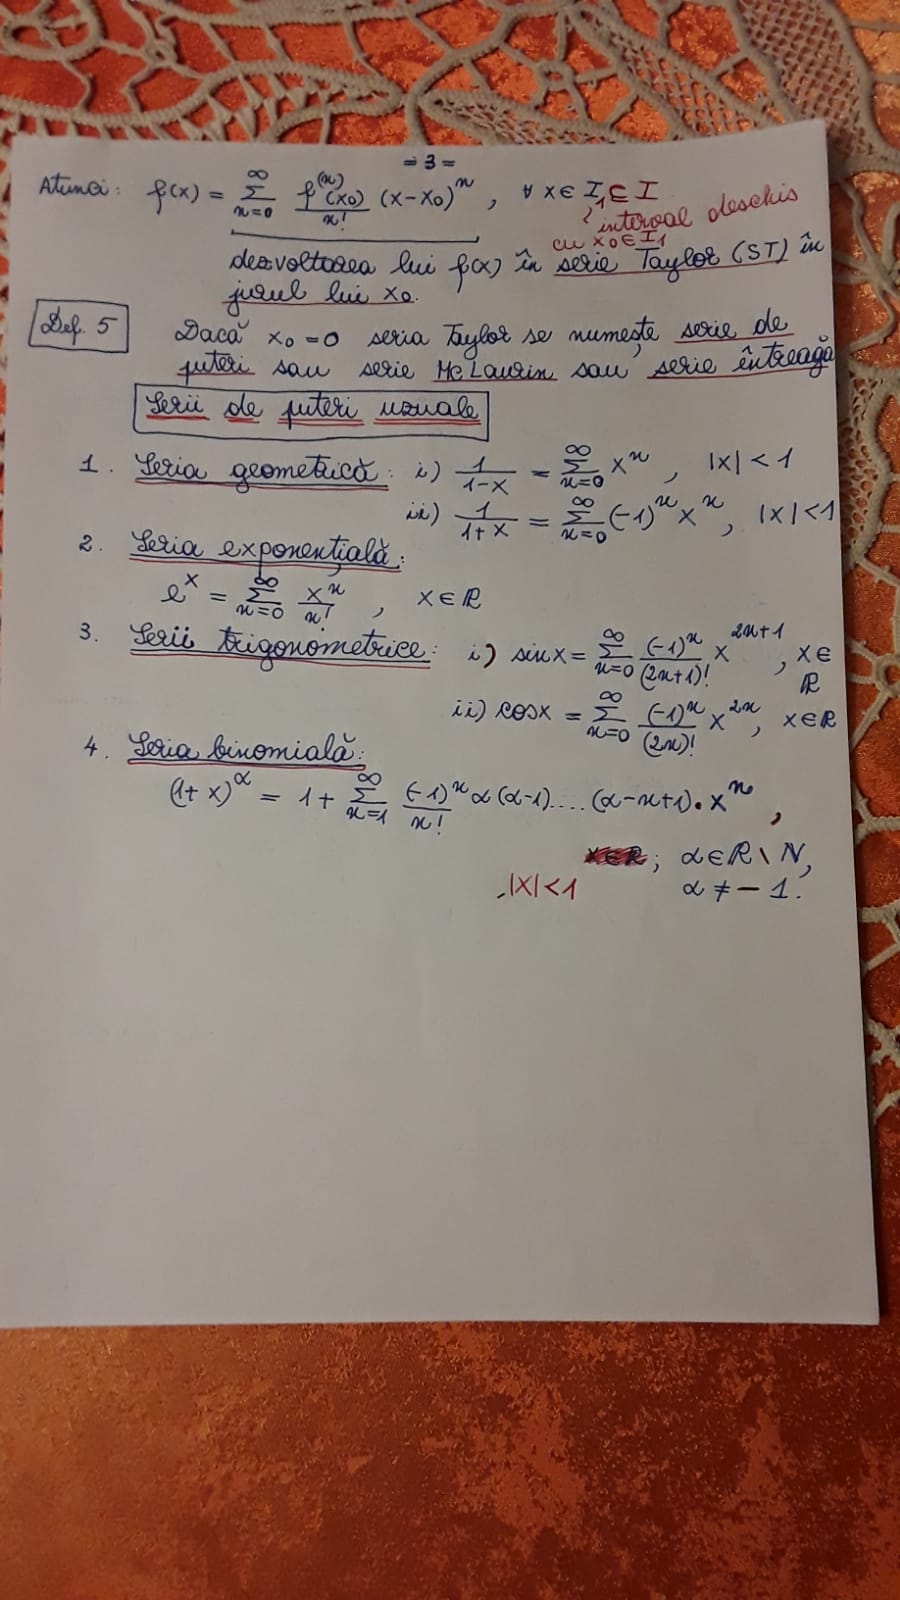 = 3 =
Atunci: f(x) = ∑_{n=0}^{∞} f^{(n)}(x₀)/n! (x-x₀)^n , ∀ x∈ I₁⊆ I
interval deschis
cu x₀∈I₁
dezvoltarea lui f(x) în serie Taylor (ST) în
jurul lui x₀.
Def. 5 Dacă x₀=0 seria Taylor se numește serie de
puteri sau serie Mc Laurin sau serie întreagă
Serii de puteri uzuale
1. Seria geometrică: i) 1/(1-x) = ∑_{n=0}^{∞} x^n , |x| < 1
ii) 1/(1+x) = ∑_{n=0}^{∞} (-1)^n x^n, |x|<1
2. Seria exponențială:
e^x = ∑_{n=0}^{∞} x^n/n! , x∈ℝ
3. Serii trigonometrice: i) sinx= ∑_{n=0}^{∞} (-1)^n/(2n+1)! x^{2n+1} , x∈
ℝ
ii) cosx = ∑_{n=0}^{∞} (-1)^n/(2n)! x^{2n}, x∈ℝ
4. Seria binomială:
(1+x)^α = 1+ ∑_{n=1}^{∞} (-1)^n/n! α(α-1)....(α-n+1)·x^n ,
x∈ℝ; α∈ℝ\N,
,|x|<1 α ≠ -1.